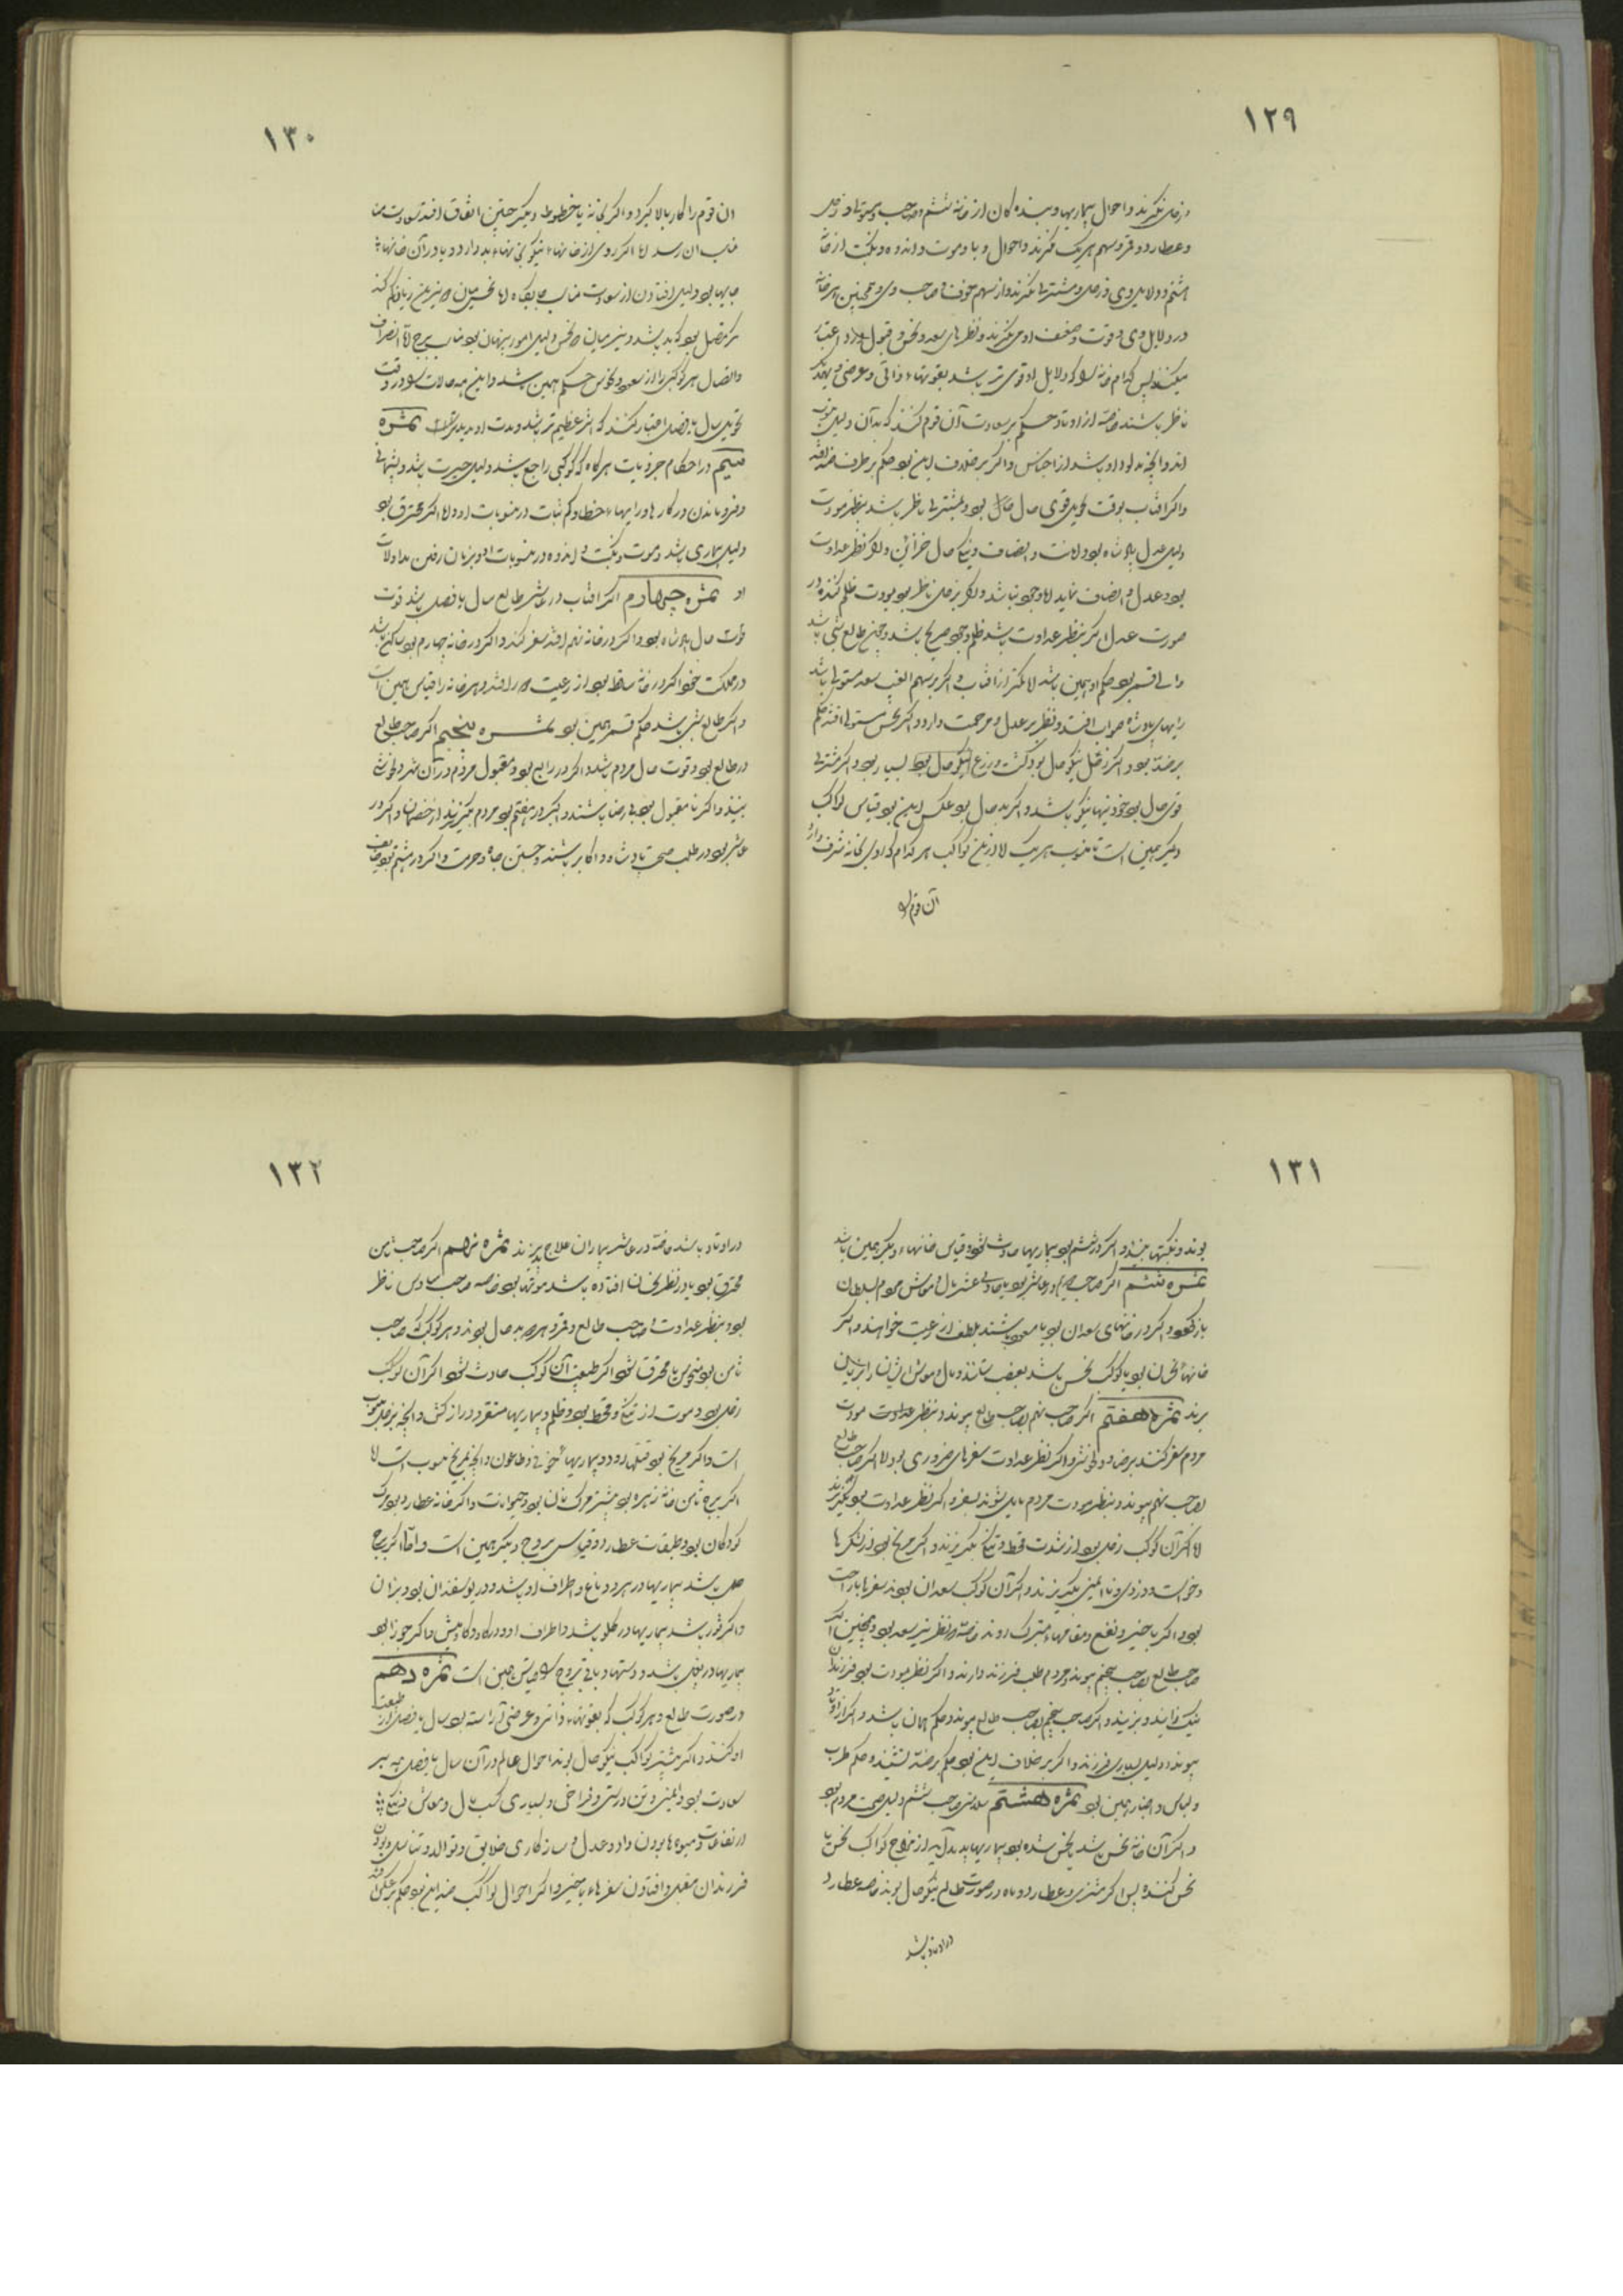 ۱۲۹
و زحل نگرند و احوال بیماریها و بندگان از خانه ششم و صاحب و
و عطارد و قمر و سهم هر یک نگرند و احوال وبا و موت و اندوه و نکبت از خانه
هشتم و دلایل وی و زحل و مشتری نگرند و از سهم خوف و صاحب وی و همچنین هر خانه
در دلایل وی و قوت و ضعف او می نگرند و نظرهای سعد و نحس و قبول و رد اعتبار
میکنند پس کدام خانه را که دلایل او قوی تر باشد بقوتهاء ذاتی و عرضی و
ناظر باشند خاصه از اوتاد حکم بر سعادت آن قوم کنند که بدان دلیل منسوب
اند و آنچه بدو باشد از اجناس و اگر بر خلاف این بود حکم بر طرف ضد افتد
و اگر افتاب بوقت تحویل قوی حال بود و بمشتری ناظر باشد بنظر مودت
دلیل عدل پادشاه بود و امانت و انصاف و نیکی حال خزاین و اگر نظر عداوت
بود عدل و انصاف نماید اما وجود نباشد و اگر بزحل ناظر بود بمودت ظلم کند در
صورت عدل اگر بنظر عداوت باشد ظلم وجود صریح باشد و چون طالع شبی باشد
والی قمر بود حکم او همین باشد اما کمتر از آفتاب و اگر بر سهم الغیب سعد مستولی باشد
رایهای پادشاه صواب افتد و نظر بر عدل و مرحمت دارد و اگر نحس مستولی افتد حکم
بر ضد بود و اگر زحل نیکو حال بود کشت و زرع نیکو حال بود بسیار بود و اگر مشتری
قوی حال بود خوردنیها نیکو باشد و اگر بد حال بود عکس این بود قیاس کواکب
دیگر همین است تا منسوب هر یک اما درین کواکب هر کدام که او بخانه شرف دارد
آن قوم را
۱۳۰
ان قوم را کار بالا گیرد و اگر بخانه یا حظوظ دیگر چنین اتفاق افتد سعادت
مناسب آن رسد اما اگر روی از خانهاء نیکو بخانهاء بد دارد و یا در آن خانهاء
بود دلیل افتادن از سعادت مناسب جایگاه اما نحس میان و نیز بین زیانکم کند
بود که بد باشد و نیز میان دو نحس دلیل امور پنهان بود مناسب برج اما انصراف
و اتصال هر کوکبی را از سعود و نحوس حکم همین باشد و این همه حالات را در وقت
تحویل سال یا فصل اعتبار کنند که اثر عظیم تر باشد و مدت او مدید ثمره
سیم در احکام جزویات هر گاه که کوکبی راجع باشد دلیل حیرت باشد و پشیمانی
و فرو ماندن در کارها و رایهاء خطا و کم ثبات در منسوبات او و اما اگر محترق بود
دلیل بیماری باشد و موت و نکبت و اندوه در منسوبات او و بزیان رفتن مدلولات
او ثمره چهارم اگر افتاب در عاشر طالع سال یا فصل باشد قوت
قوت حال پادشاه بود و اگر در خانه نهم افتد سفر کند و اگر در خانه چهارم بود ساکن باشد
در مملکت خود و اگر در خانه ساقط بود از رعیت را افتد و هر خانه را قیاس همین است
و اگر طالع شبی باشد حکم قمر همین بود ثمره پنجم اگر صاحب طالع
در طالع بود و قوت حال مردم باشد و اگر در رابع بود و مقبول مردم در آن شهر دلخوشی
بینند و اگر نامقبول بود بی رضا باشند و اگر در هفتم بود مردم بگریزند از خصمان و اگر در
عاشر بود در طلب صحبت پادشاه و اکابر باشند و جستن جاه و حرمت و اگر در هشتم بود خایف
۱۳۱
بوند و نکبتها بینند و اگر در ششم بود بیماریها حادث شود و قیاس خانهاء دیگر همین باشد
ثمره ششم اگر صاحب در عاشر بود یا حادی عشر مال و مواشی مردم السلطان
باز گردد و اگر در خانهای سعدان بود یا مسعود باشند بلطف از رعیت خواهند و اگر
خانهاء نحسان بود یا کوکب نحس باشد بغصب ستانند و مال و مواشی ایشان را بزیان
برند ثمره هفتم اگر صاحب نهم بصاحب طالع پیوندد بنظر عداوت مودت
مردم سفر کنند برضا و دلخوشی و اگر نظر عداوت سفرهای ضروری بود اما اگر صاحب طالع
بصاحب نهم پیوندد بنظر مودت مردم مایل شوند بسفر و اگر نظر عداوت بود بگریزند
اما اگر آن کوکب زحل بود از شدت قحط و تنگی بگریزند و اگر مریخ بود از لشکرها
و خواست و دزدی و ناایمنی بگریزند و اگر آن کوکب سعدان بوند سفرها با راحت
بود و اگر با خیر و نفع و مقامهاء متبرک روند خاصه در نظر نیر سعد بود و همچنین اگر
صاحب طالع بصاحب پنجم پیوندد مردم طلب فرزند دارند و اگر نظر مودت بود فرزندان
نیک زایند و بزیند و اگر صاحب پنجم بصاحب طالع پیوندد حکم همان باشد و اگر از اوتاد
پیوندد دلیل بسیاری فرزند و اگر بر خلاف این بود حکم بر ضد نشیند و حکم طرب
و لباس و اخبار همین بود ثمره هشتم سلامتی صاحب ششم دلیل صحت مردم بود
و اگر آن خانه نحس باشد یا نحس شده بود بیماریها پدید آید از مزاج کواکب نحس یا
نحس کننده پس اگر مشتری و عطارد و ماه در صورت طالع نیکو حال بوند خاصه عطارد
در اوتاد باشد
۱۳۲
در اوتاد باشد خاصه در عاشر بیماران علاج پذیرند ثمره نهم اگر صاحب ثامن
محترق بود یا در نظر نحسان افتاده باشد موتها بود خاصه صاحب سادس ناظر
بود بنظر عداوت صاحب طالع و قمر و هر دو بد حال بوند و هر کوکب که صاحب
ثامن بود منحوس یا محترق شود اگر طبیعت آن کوکب حادث شود اگر آن کوکب
زحل بود موت از تنگی و قحط بود و ظلم و بیماریها مستقر و دراز کش و آنچه بزحل منسوب
است و اگر مریخ بود فتنها رود و بیماریهاء خونی و طاعون و آنچه بمریخ منسوب است اما
اگر برج ثامن خانه زهره بود بیشتر مرگ زنان بود و حیوانات و اگر خانه عطارد بود مرگ
کودکان بود و طبقات عطارد و قیاس بروج دیگر همین است و اما اگر برج
حمل باشد بیماریها در سر و دماغ و اطراف او باشد و در گوسفندان بود و بزان
و اگر ثور باشد بیماریها در گلو باشد و اطراف او و در گاو و گاومیش و اگر جوزا بود
بیماریها در باشد و دستها و باقی بروج را قیاس همین است ثمره دهم
در صورت طالع و هر کوکب که بقوتهاء ذاتی و عرضی آراسته بود سال یا فصل از طبیعت
او کنند و اگر بیشتر کواکب نیکو حال بوند احوال عالم در آن سال یا فصل همه بر
سعادت بود و ایمنی و تن درستی و فراخی و بسیاری کسب مال و معاش و نیکی
ارتفاعات و میوه ها بودن و داد و عدل و سازکاری خلایق و توالد و تناسل و بودن
فرزندان مقبل و افتادن سفرهاء با خیر و اگر احوال کواکب ضد این بود حکم بر عکس